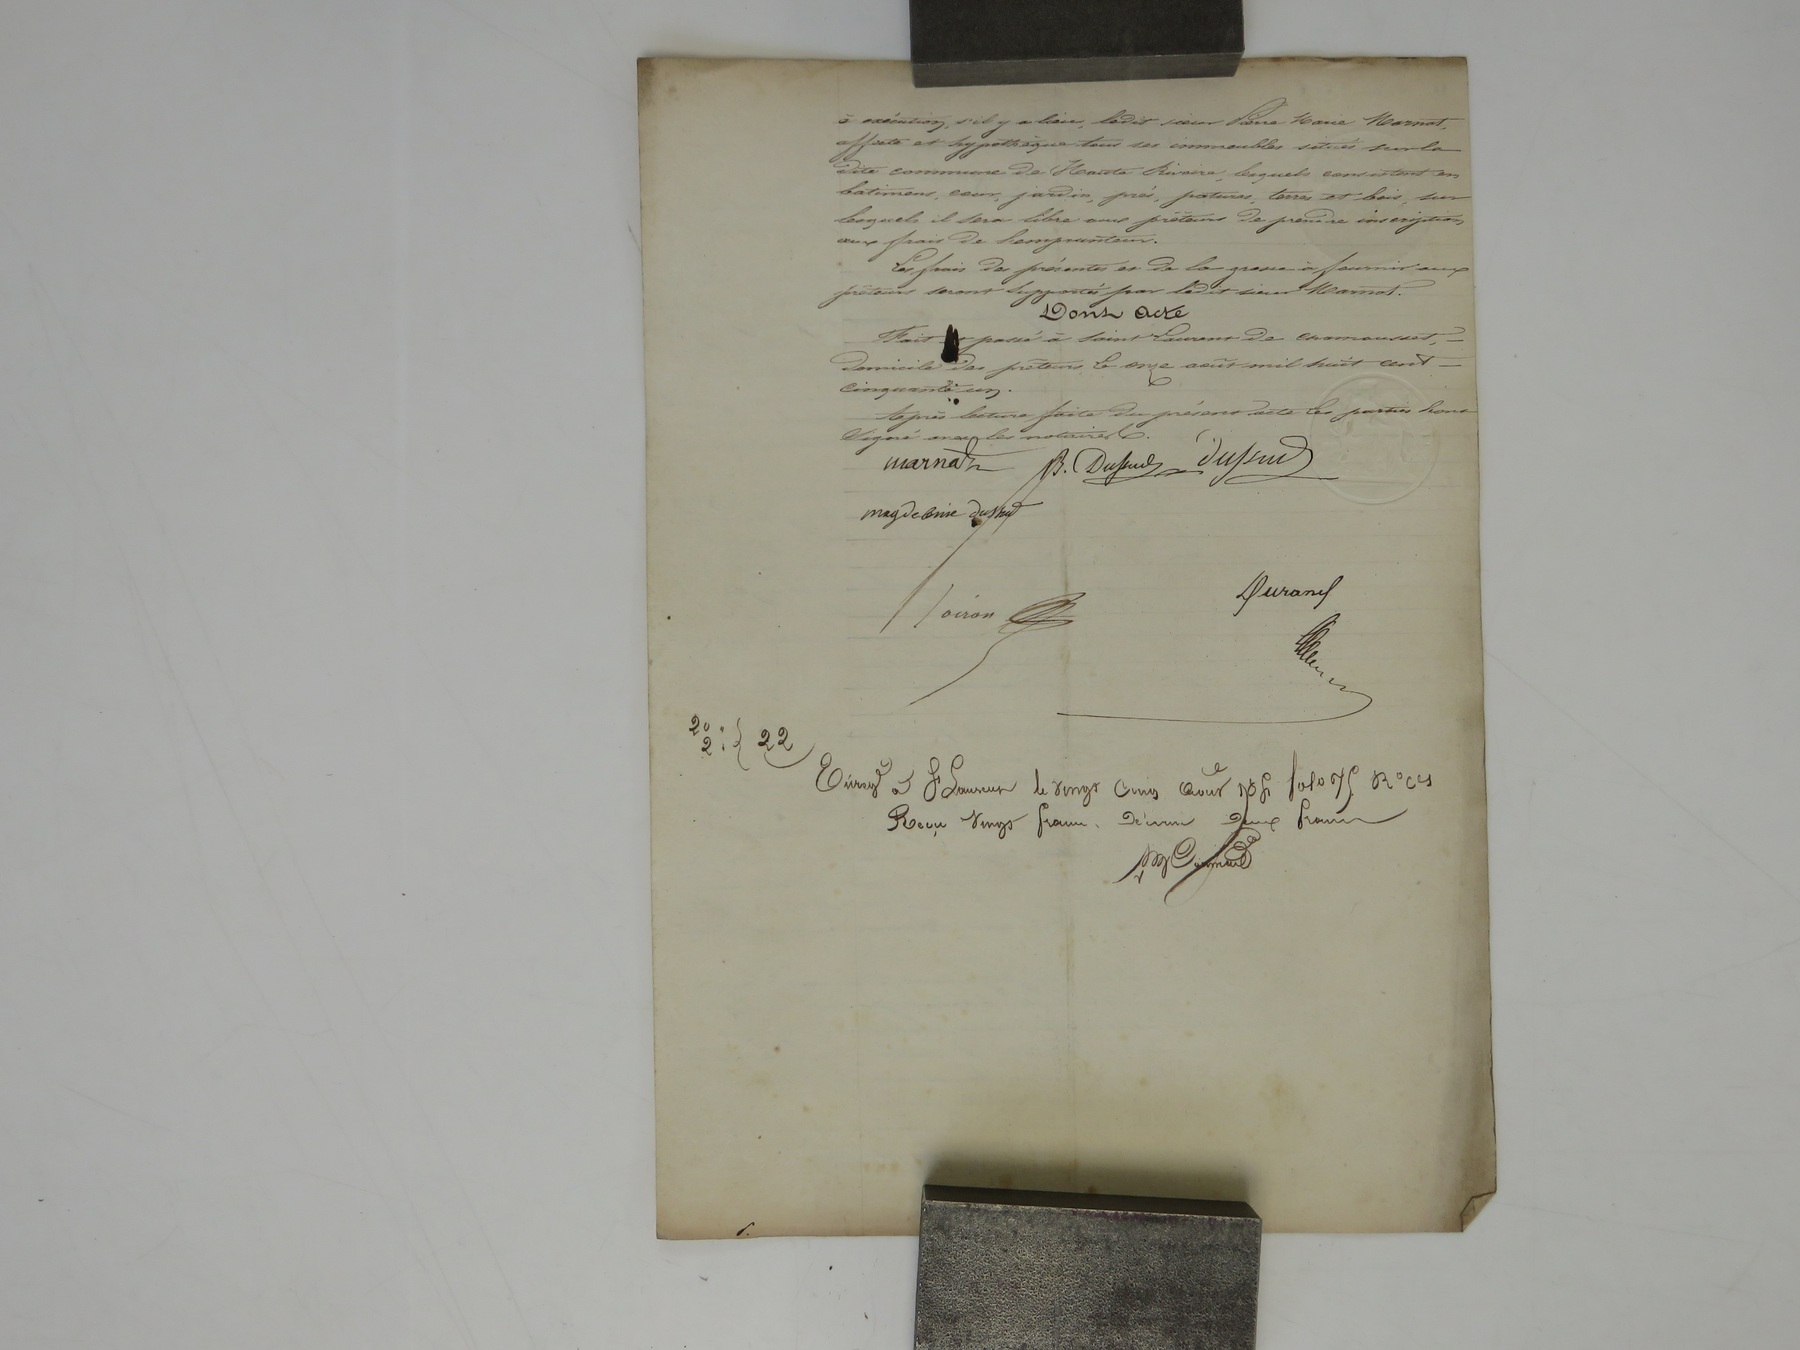 à exécution, s'il y a lieu, ledit sieur Pierre Marie Marnat,
affecte et hypothèque tous ses immeubles situés sur la
dite commune de Haute Rivoire, lesquels consistent en
batimens, cour, jardin, prés, patures, terres et bois, sur
lesquels il sera libre aux prêteurs de prendre inscription
aux frais de l'emprunteur.
Les frais des présentes et de la grosse à fournir aux
prêteurs seront supportés par ledit sieur Marnat.
Dont acte
Fait et passé à Saint Laurent de Chamousset,
domicile des prêteurs, le onze août mil huit cent
cinquante un.
Après lecture faite du présent acte les parties l'ont
signé avec les notaires.
Marnat B. Dussud Dussud
magdeleine dussud
Durand
20
2 } 22
à St Laurent le vingt cinq Août
Reçu vingt francs. décime deux francs